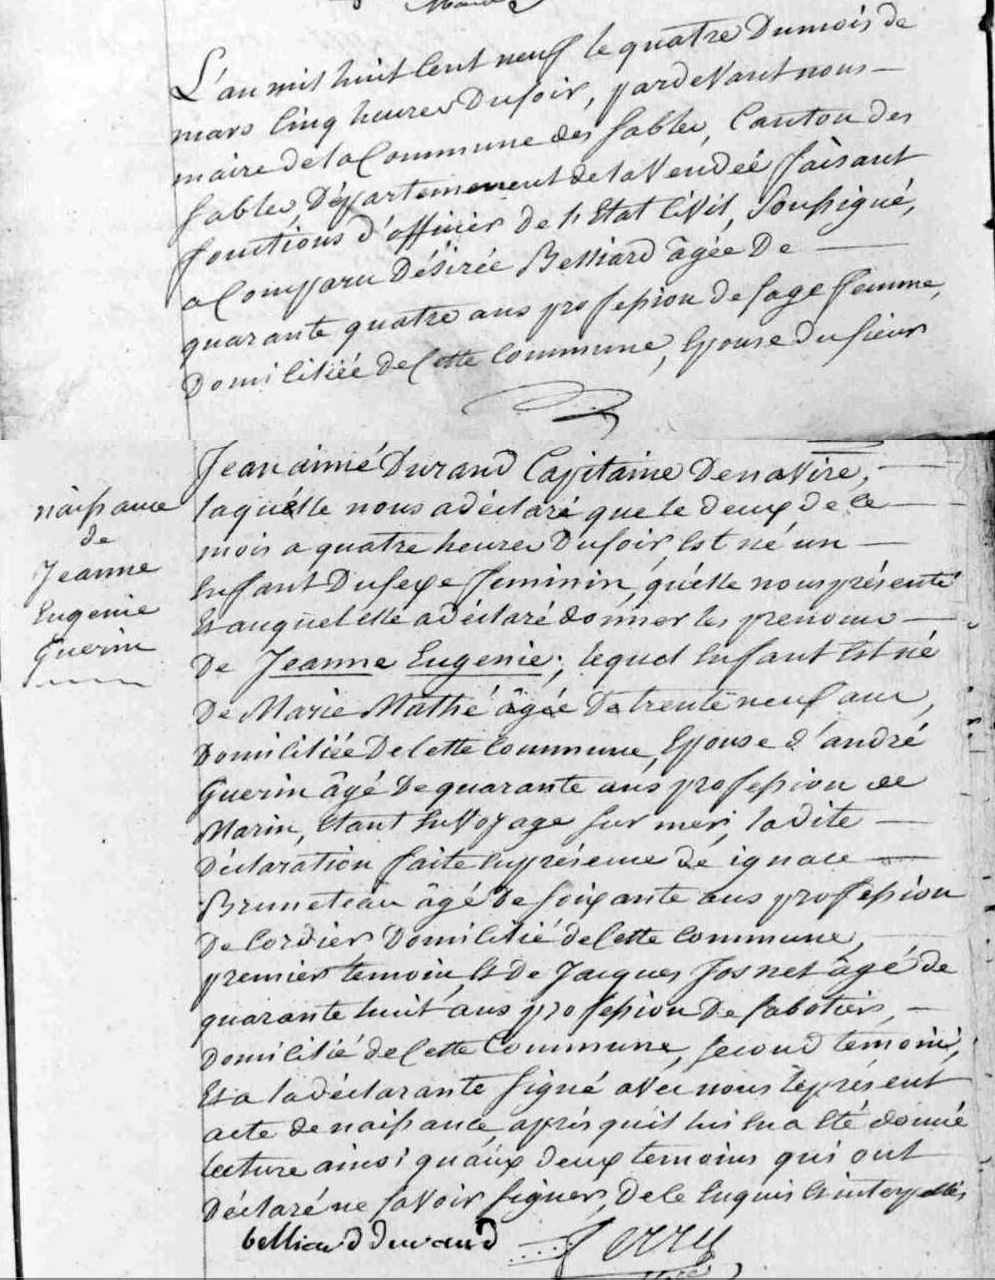 L'an mil huit cent neuf le quatre Dumois de
mars cinq heures Dusoir, pardevant nous —
maire dela Commune des sables, Canton des
sables, Département de la Vendée faisant
fonctions d'officier de l'Etat Civil, Soussigné,
a Comparu Désirée Belliard âgée De —
quarante quatre ans profession de sage femme,
Domiciliée de Cette Commune, Epouse du sieur
Jean aimé Durand Capitaine De navire, —
laquelle nous a déclaré que le deux de ce —
mois a quatre heures Dusoir, Est né un —
Enfant Du sexe feminin, qu'elle nous présente
Et auquel elle a déclaré donner les prenoms —
De Jeanne Eugenie; lequel Enfant Est né
De Marie Mathé âgée De trente neuf ans,
Domiciliée De Cette Commune, Epouse d'andré
Guerin âgé De quarante ans profession de
Marin, Etant En Voyage sur mer, la dite —
Déclaration faite En présence de ignace —
Bruneteau âgé De soixante ans profession
De Cordier Domicilié de Cette Commune, —
premier temoin, Et De Jacques Josnet âgé de
quarante huit ans profession De sabotier, —
Domicilié de Cette Commune, second temoin,
Et a la déclarante signé avec nous le présent
acte de naissance, après qu'il lui En a Eté donné
lecture ainsi qu'aux deux temoins qui ont
Déclaré ne savoir signer, De ce Enquis Et interpellés
naissance
de
Jeanne
Eugenie
Guerin
belliard durand